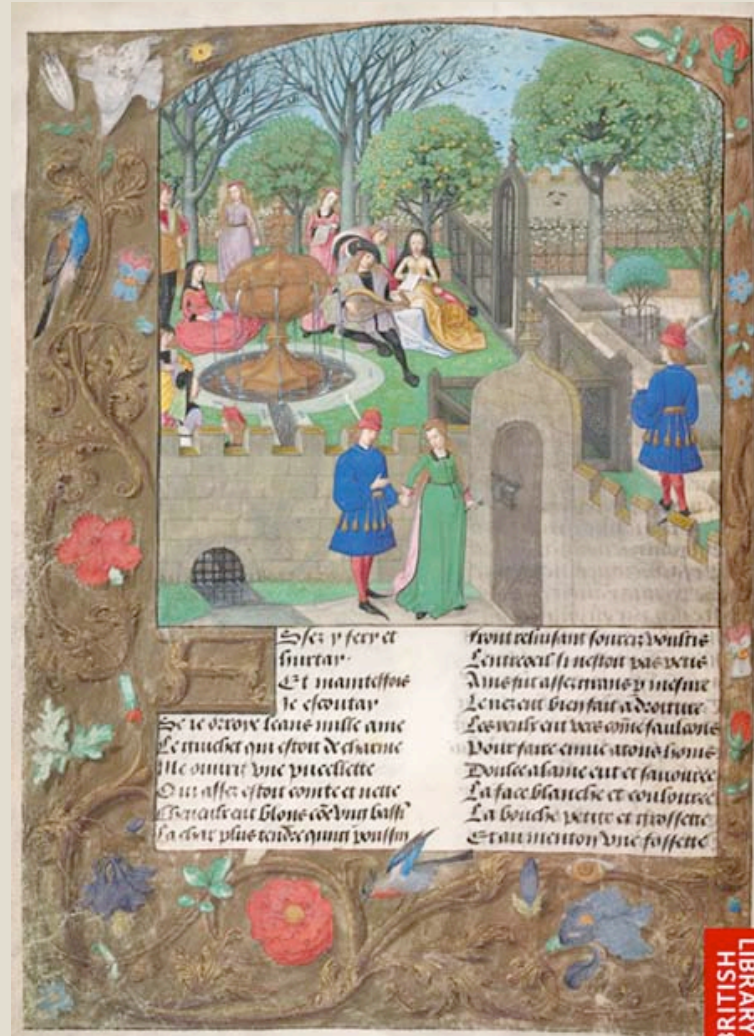 Assez y fery et
hurtay
Et maintesfois
Je escoutay
Se je orroye leans nulle ame
Le guichet qui estoit de charme
Me ouvrit une pucellette
Qui assez estoit cointe et nette
Cheveulx eut blons cõe ung bassĩ
La char plus tendre qung poussin
Front reluisant sourcilz voultis
Lentreoeil si nestoit pas petis
Ains fut assez grans p mesure
Le nez eut bien fait a droiture
Les yeulx eut vers cõme faulcons
Pour faire envie a tous homs
Doulce alaine eut et savouree
La face blanche et coulouree
La bouche petite et grossette
Et au menton une fossette
BRITISH
LIBRARY